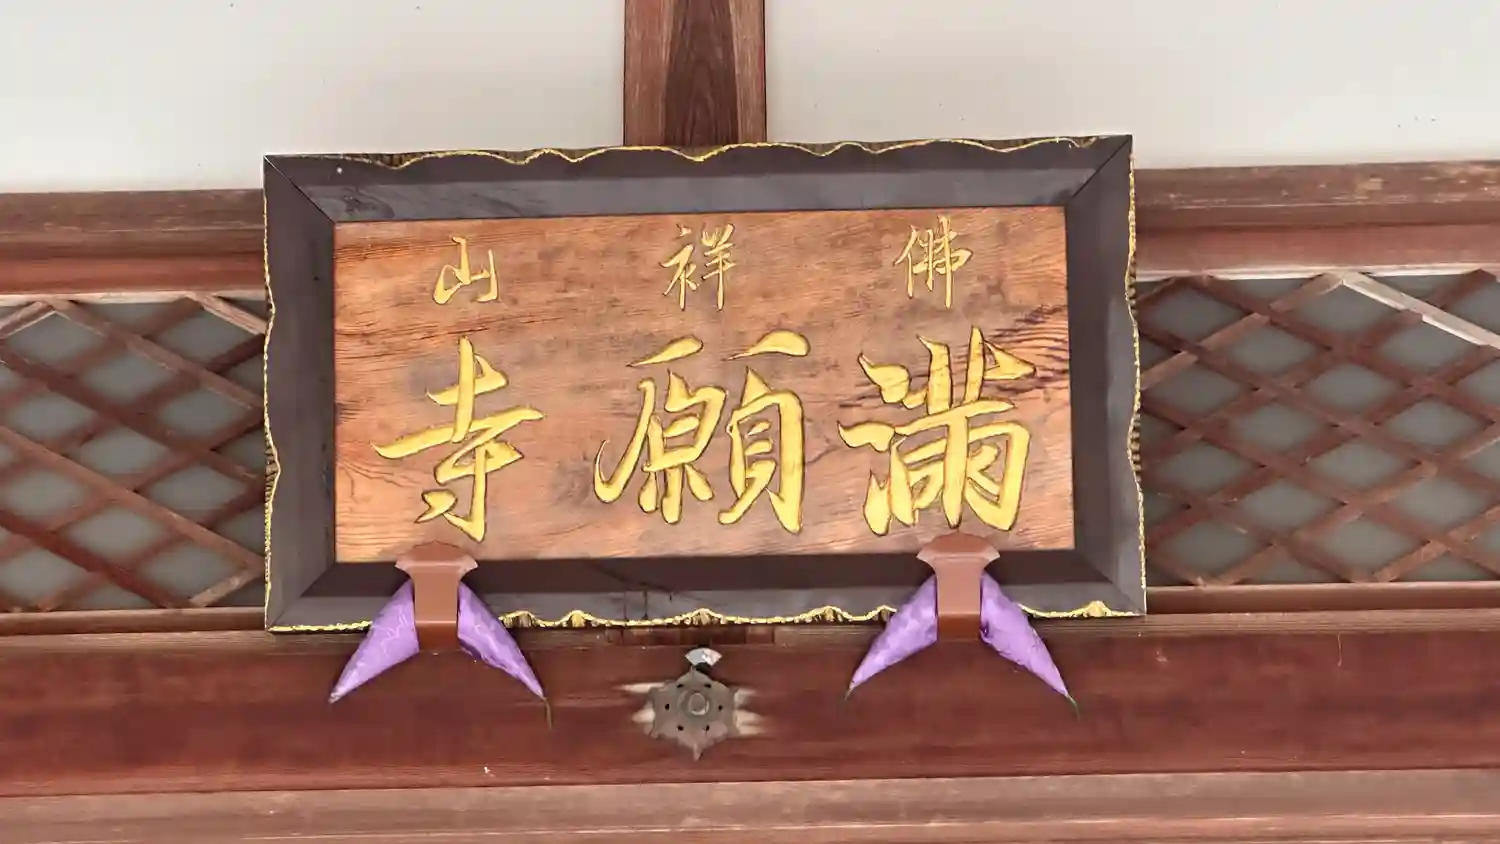 佛祥山
滿願寺